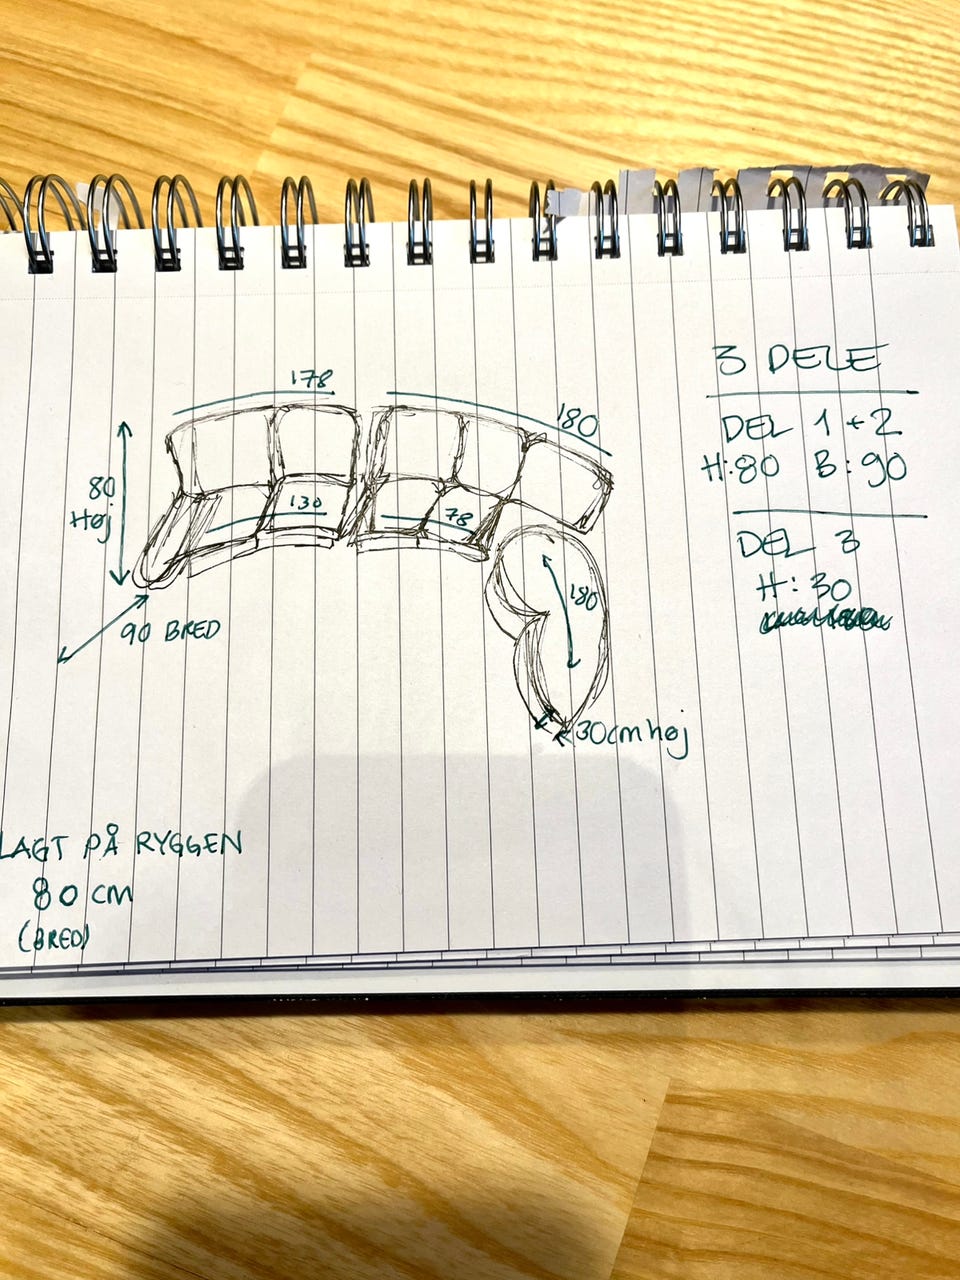 178
180
80
Høj
130
78
90 BRED
180
30cm høj
3 DELE
DEL 1 + 2
H:80 B:90
DEL 3
H:30
LAGT PÅ RYGGEN
80 CM
(BRED)